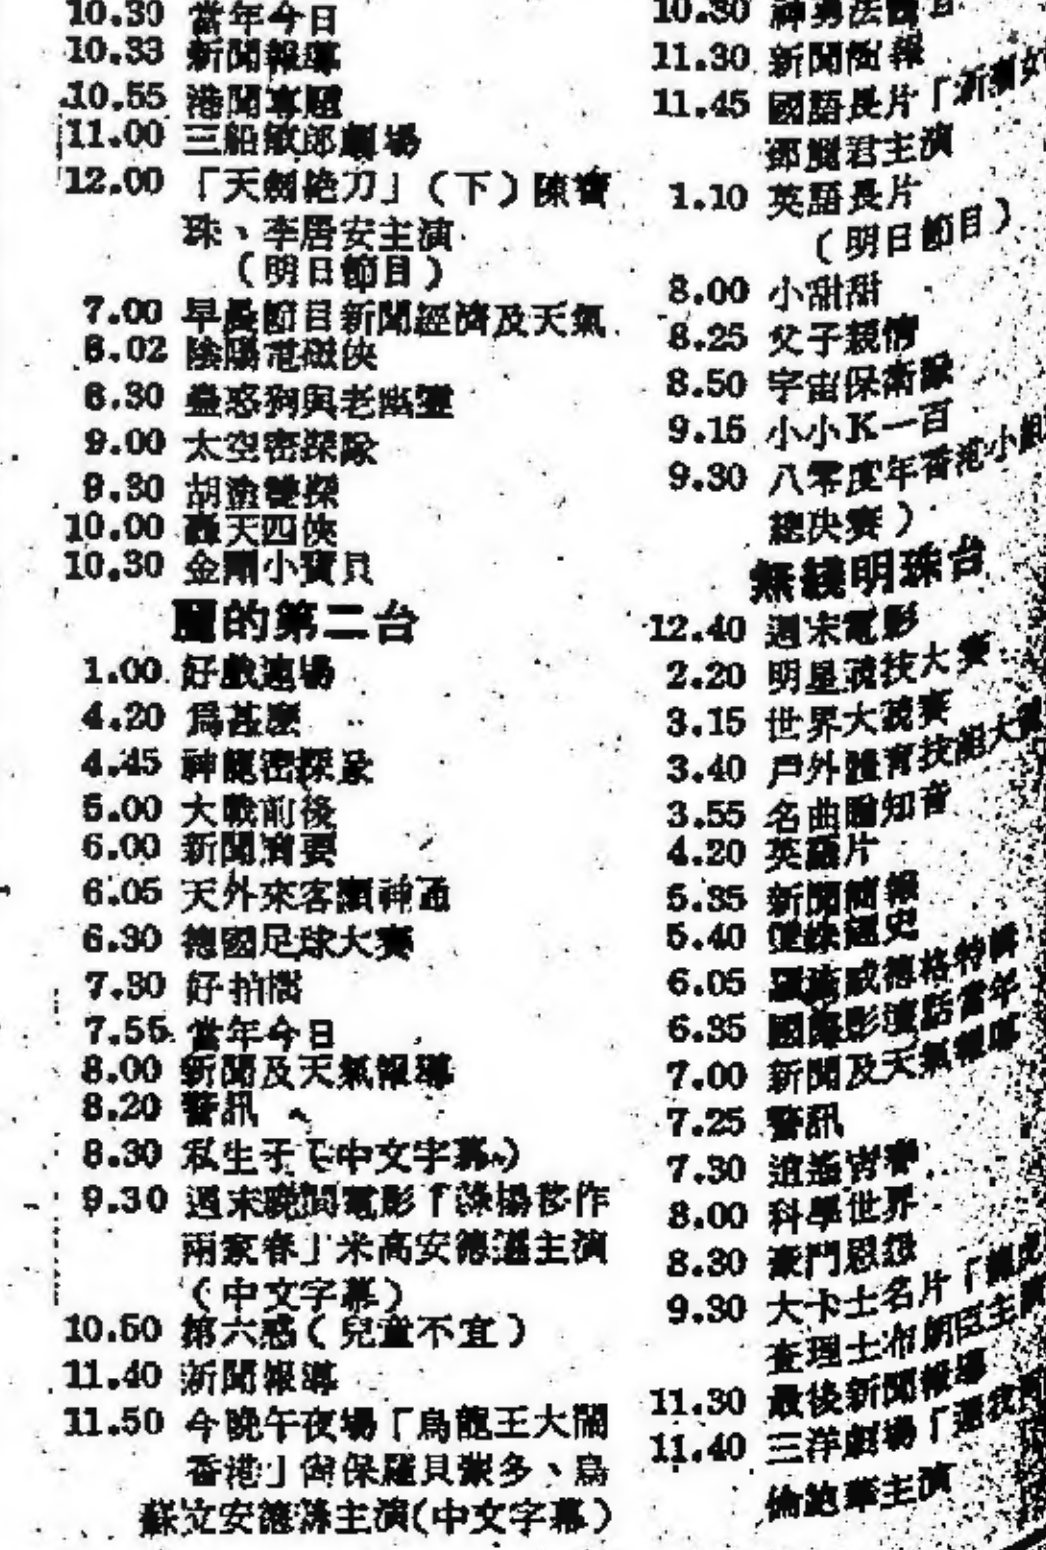 10.30 當年今日
10.33 新聞報導
10.55 港聞專題
11.00 三船敏郎劇場
12.00 「天劍絕刀」(下)陳寶
珠、李居安主演
(明日節目)
7.00 早晨節目新聞經濟及天氣
8.02 陰陽電磁俠
8.30 蠱惑狗與老幽靈
9.00 太空密探隊
9.30 胡塗雙探
10.00 轟天四俠
10.30 金剛小寶貝
麗的第二台
1.00 好戲連場
4.20 爲甚麼
4.45 神龍密探隊
5.00 大戰前後
6.00 新聞撮要
6.05 天外來客顯神通
6.30 德國足球大賽
7.30 好拍檔
7.55 當年今日
8.00 新聞及天氣報導
8.20 警訊
8.30 私生子(中文字幕)
9.30 週末晚間電影「綠楊移作
兩家春」米高安德遜主演
(中文字幕)
10.50 第六感(兒童不宜)
11.40 新聞報導
11.50 今晚午夜場「烏龍王大鬧
香港」尙保羅貝蒙多、烏
蘇文安德絲主演(中文字幕)
10.30
11.30 新聞簡報
11.45 國語長片「
鄧麗君主演
1.10 英語長片
(明日節目)
8.00 小甜甜
8.25 父子親情
8.50 宇宙保衛隊
9.15 小小K一百
9.30 八零度年香港小姐
總決賽)
無綫明珠台
12.40 週末電影
2.20 明星競技大賽
3.15 世界大競賽
3.40 戶外體育技能大
3.55 名曲贈知音
4.20 英語片
5.35 新聞簡報
5.40 通史
6.05 威德格特輯
6.35 國際影壇話當年
7.00 新聞及天氣報導
7.25 警訊
7.30 逍遙
8.00 科學世界
8.30 豪門恩怨
9.30 大卡士名片「龍虎
查理士布朗臣主演
11.30 最後新聞報導
11.40 三洋劇場「還我河
主演